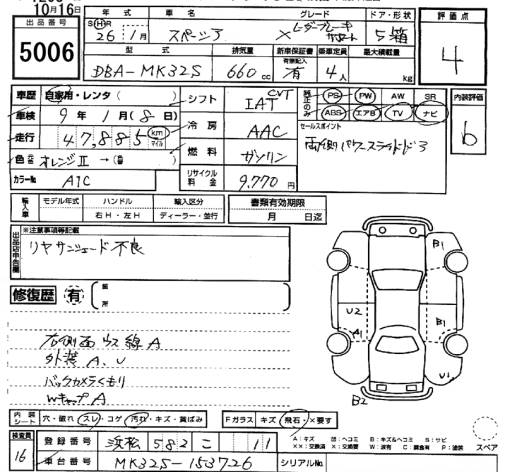 10月16日
出品番号
5006
年式 車名 グレード ドア・形状
S H R 26年1月 スペーシア X ヒダブレーキサポート 5 箱
評価点
4
型式 排気量 新車保証書 乗車定員 最大積載量
有無記入
DBA-MK32S 660cc 有 4人 kg
車歴 自家用・レンタ( )
車検 9年1月(8日)
走行 47,885 km マイル
色 オレンジⅡ →( )
カラーNo. A1C
シフト CVT IAT
冷房 AAC
燃料 ガソリン
リサイクル料金 9,770円
純正のみ PS PW AW SR
ABS エアB TV ナビ
セールスポイント
両側パワースライドドア
内装評価
b
輸入車 モデル年式 ハンドル 輸入区分 書類有効期限
右H・左H ディーラー・並行 月 日迄
出品店申告欄
※注意事項等記載
リヤサンシェード不良
修復歴 有 箇所
右側面ウス線A
外装A、U
バックカメラくもり
WキャプA
B1
U2
A1
B1
U1
B2
内装シート 穴・破れ スレ・コゲ 汚れ・キズ・黄ばみ
Fガラス キズ 飛石・X要す
検査員
16
登録番号 浜松 582 こ 11
車台番号 MK32S-153726
シリアルNo.
A:キズ U:ヘコミ B:キズ&ヘコミ S:サビ
スペア